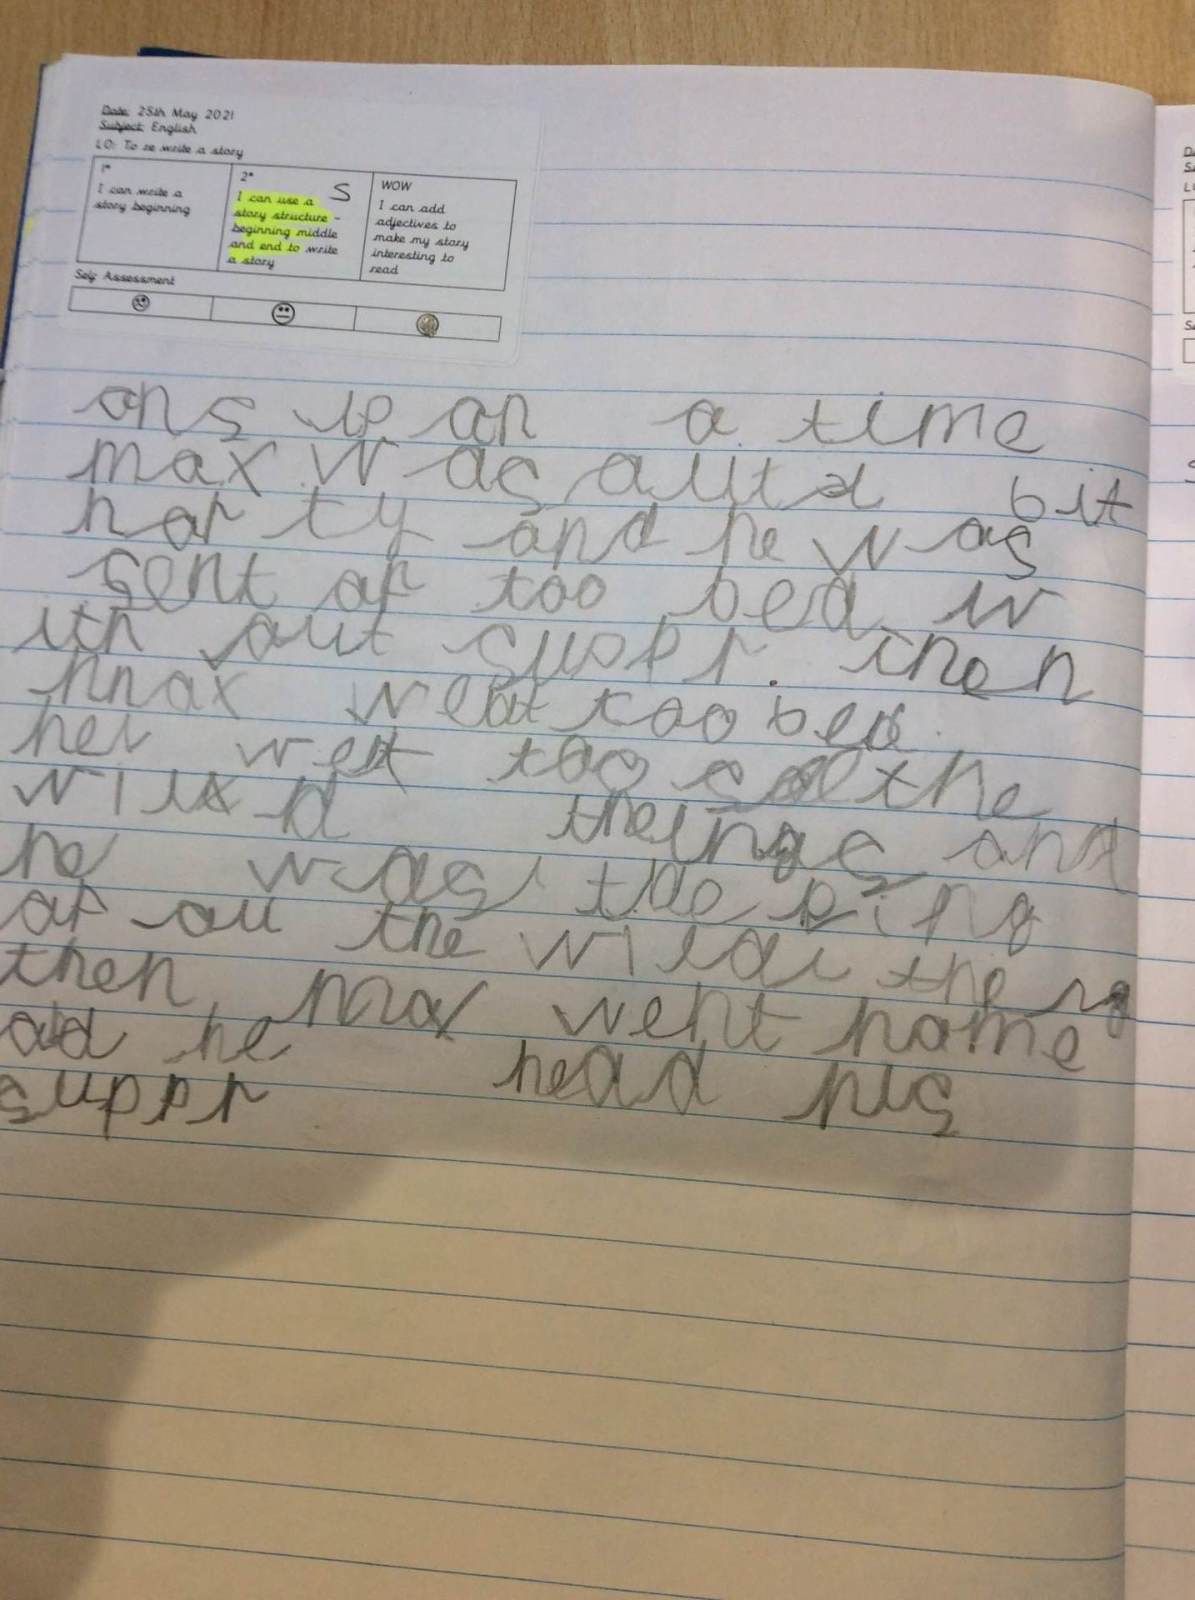 Date: 25th May 2021
Subject: English
LO: To re write a story
1*
I can write a
story beginning
2*
S
I can use a
story structure -
beginning middle
and end to write
a story
WOW
I can add
adjectives to
make my story
interesting to
read
Self Assessment
ons ip an a time
max was a bit
norty and he was
sent ap too bed w
ith out suppr. then
max went too bed.
hei went too the
wiuld theings and
he was the king
af all the wield the
then max went home
and he head his
suppr